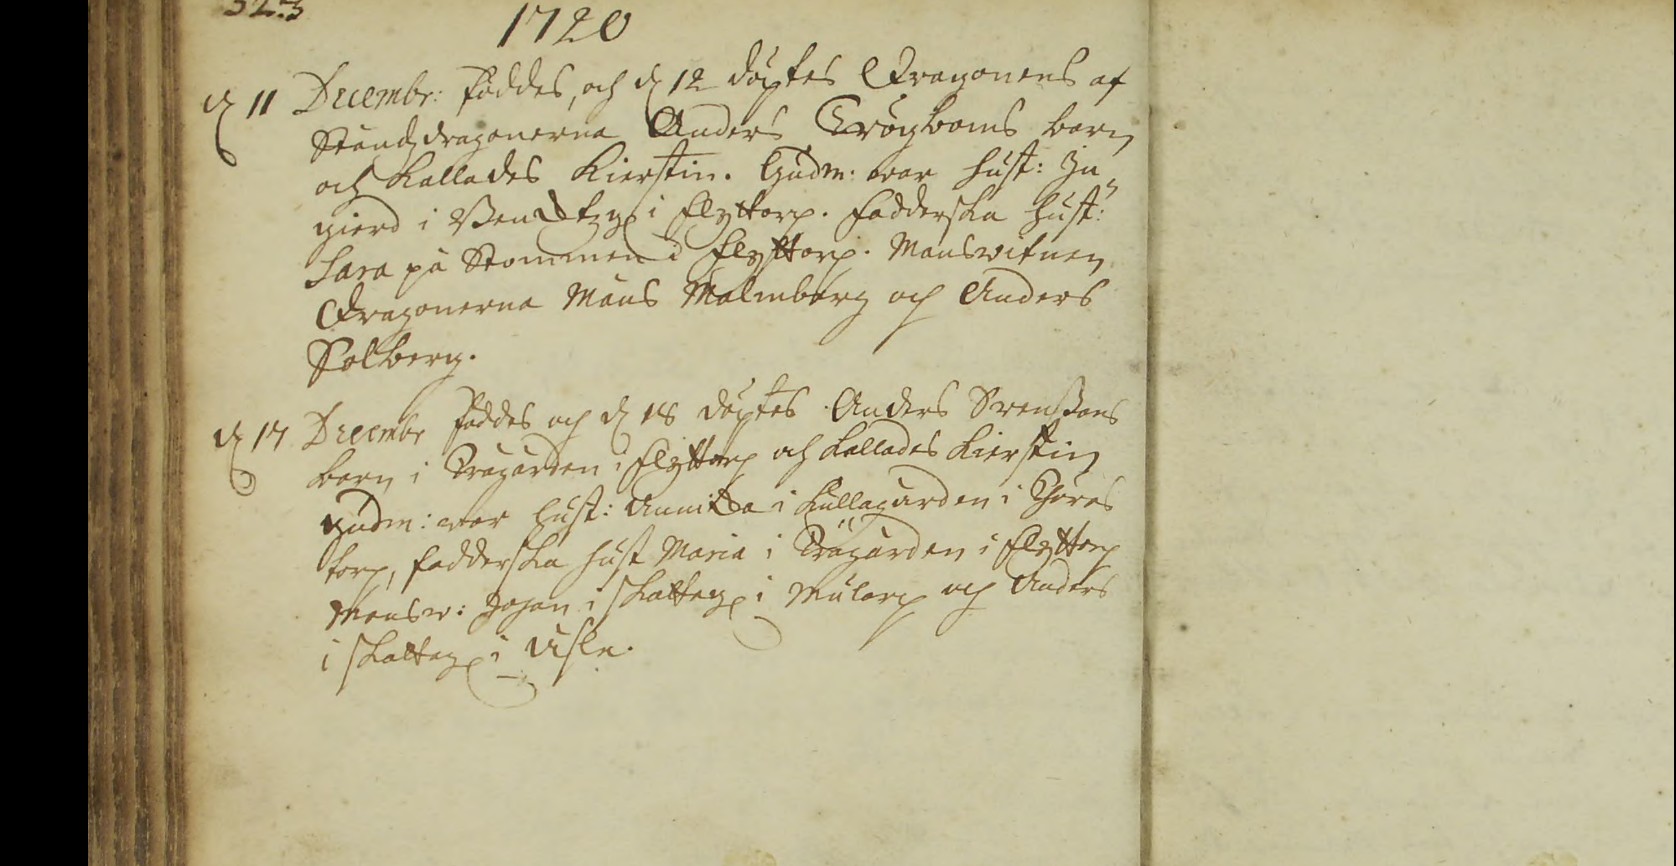 323
1720
d 11 Decembr: föddes, och d 12 döptes Dragonens af
Ståndzdragonerna Anders Trögboms barn
och kallades Kierstin. Gudm: war hust: In„
gierd i Bendtzg i Flyttorp. Fadderska hust:
Sara på Stommen i Flyttorp. Manswitnen
Dragonerna Måns Malmberg och Anders
Solberg.
d 17 Decembr föddes och d 18 döptes Anders Svenssons
barn i Krågården i Flyttorp och kallades Kierstin
gudm: war hust: Annika i Kullagården i Thores
torp, fadderska hust Maria i Krågården i Flyttorp
Mansw: Johan i skatteg i Mularp och Anders
i skatteg i Usle.